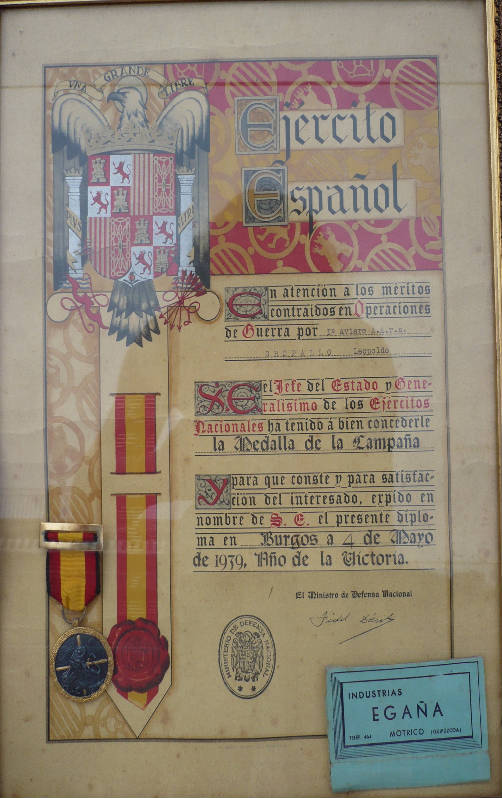 UNA GRANDE LIBRE
Ejército
Español
En atención a los méritos
contraidos en Operaciones
de Guerra por 1º Aviere A.A.V.N.
OROFALLO Leopoldo
S.E. el Jefe del Estado y Gene-
ralísimo de los Ejércitos
Nacionales ha tenido á bien concederle
la Medalla de la Campaña
Y para que conste y para satisfac-
ción del interesado, expido en
nombre de S. E. el presente diplo-
ma en Burgos a 4 de Mayo
de 1939, Año de la Victoria.
El Ministro de Defensa Nacional
MINISTERIO DE DEFENSA NACIONAL
INDUSTRIAS
EGAÑA
TELEF. 464 MOTRICO (GUIPUZCOA)